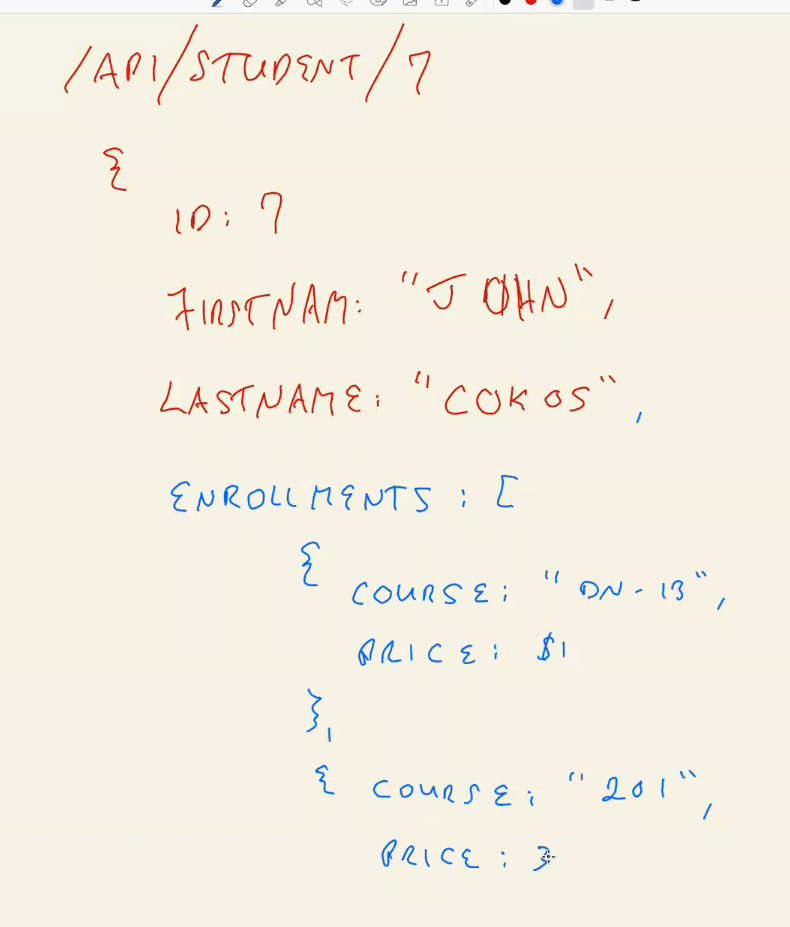 /API/STUDENT/7
{
ID: 7
FIRSTNAM: "JOHN",
LASTNAME: "COKOS",
ENROLLMENTS: [
{
COURSE: "DN-13",
PRICE: $1
},
{ COURSE: "201",
PRICE: 3